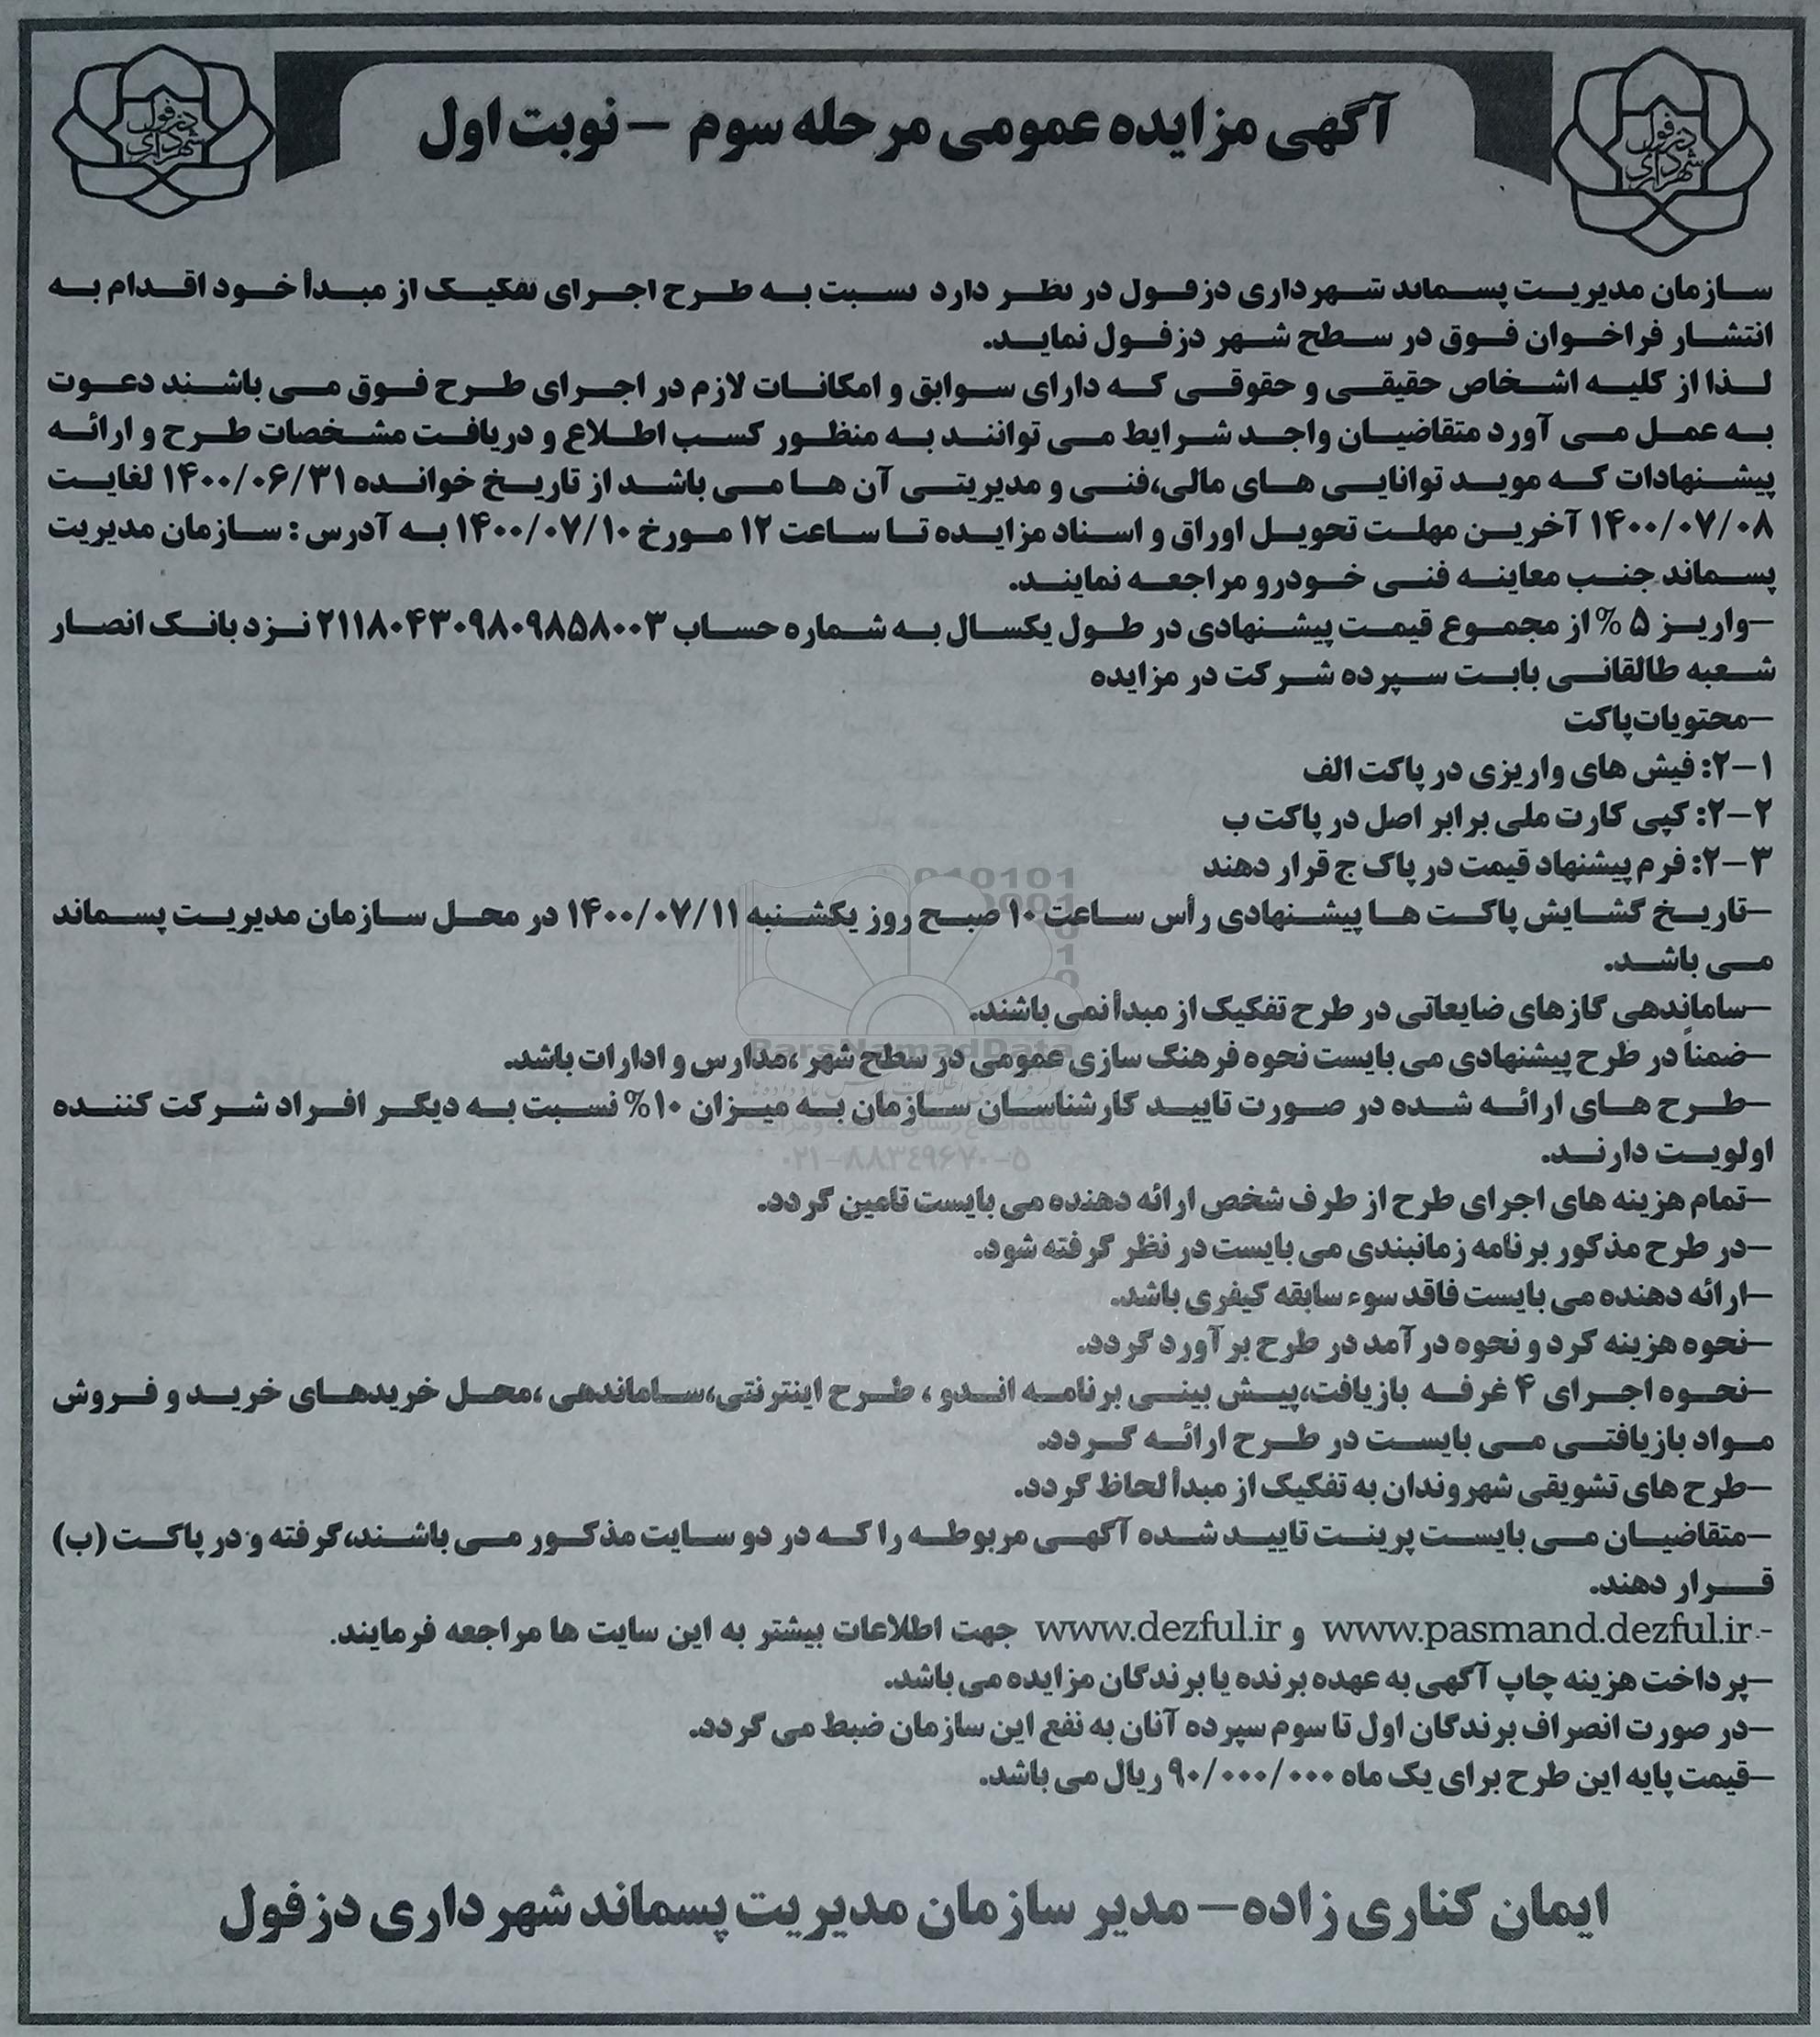 شهرداری دزفول
آگهی مزایده عمومی مرحله سوم – نوبت اول
شهرداری دزفول
سازمان مدیریت پسماند شهرداری دزفول در نظر دارد نسبت به طرح اجرای تفکیک از مبدأ خود اقدام به
انتشار فراخوان فوق در سطح شهر دزفول نماید.
لذا از کلیه اشخاص حقیقی و حقوقی که دارای سوابق و امکانات لازم در اجرای طرح فوق می باشند دعوت
به عمل می آورد متقاضیان واجد شرایط می توانند به منظور کسب اطلاع و دریافت مشخصات طرح و ارائه
پیشنهادات که موید توانایی های مالی،فنی و مدیریتی آن ها می باشد از تاریخ خوانده ۱۴۰۰/۰۶/۳۱ لغایت
۱۴۰۰/۰۷/۰۸ آخرین مهلت تحویل اوراق و اسناد مزایده تا ساعت ۱۲ مورخ ۱۴۰۰/۰۷/۱۰ به آدرس : سازمان مدیریت
پسماند جنب معاینه فنی خودرو مراجعه نمایند.
–واریز ۵ % از مجموع قیمت پیشنهادی در طول یکسال به شماره حساب ۲۱۱۸۰۴۳۰۹۸۰۹۸۵۸۰۰۳ نزد بانک انصار
شعبه طالقانی بابت سپرده شرکت در مزایده
–محتویات پاکت
۲–۱: فیش های واریزی در پاکت الف
۲–۲: کپی کارت ملی برابر اصل در پاکت ب
۲–۳: فرم پیشنهاد قیمت در پاک ج قرار دهند
–تاریخ گشایش پاکت ها پیشنهادی رأس ساعت ۱۰ صبح روز یکشنبه ۱۴۰۰/۰۷/۱۱ در محل سازمان مدیریت پسماند
می باشد.
–ساماندهی گازهای ضایعاتی در طرح تفکیک از مبدأ نمی باشند.
–ضمناً در طرح پیشنهادی می بایست نحوه فرهنگ سازی عمومی در سطح شهر ،مدارس و ادارات باشد.
–طرح های ارائه شده در صورت تایید کارشناسان سازمان به میزان ۱۰% نسبت به دیگر افراد شرکت کننده
اولویت دارند.
–تمام هزینه های اجرای طرح از طرف شخص ارائه دهنده می بایست تامین گردد.
–در طرح مذکور برنامه زمانبندی می بایست در نظر گرفته شود.
–ارائه دهنده می بایست فاقد سوء سابقه کیفری باشد.
–نحوه هزینه کرد و نحوه درآمد در طرح برآورد گردد.
–نحوه اجرای ۴ غرفه بازیافت،پیش بینی برنامه اندو ، طرح اینترنتی،ساماندهی ،محل خریدهای خرید و فروش
مواد بازیافتی می بایست در طرح ارائه گردد.
–طرح های تشویقی شهروندان به تفکیک از مبدأ لحاظ گردد.
–متقاضیان می بایست پرینت تایید شده آگهی مربوطه را که در دو سایت مذکور می باشند،گرفته و در پاکت (ب)
قرار دهند.
-www.pasmand.dezful.ir و www.dezful.ir جهت اطلاعات بیشتر به این سایت ها مراجعه فرمایند.
–پرداخت هزینه چاپ آگهی به عهده برنده یا برندگان مزایده می باشد.
–در صورت انصراف برندگان اول تا سوم سپرده آنان به نفع این سازمان ضبط می گردد.
–قیمت پایه این طرح برای یک ماه ۹۰/۰۰۰/۰۰۰ ریال می باشد.
ایمان کناری زاده– مدیر سازمان مدیریت پسماند شهرداری دزفول
ParsNamadData
پایگاه اطلاع رسانی مناقصه و مزایده
۰۲۱-۸۸۳۴۹۶۷۰-۵